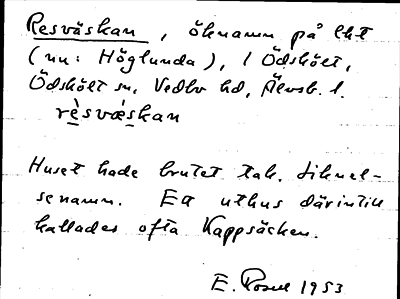 Resväskan, öknamn på lht
(nu: Höglunda), 1 Ödskölt,
Ödskölt sn, Vedbo hd, Älvsb. l.
rèsvǽskan
Huset hade brutet tak. Liknel-
senamn. Ett uthus därintill
kallades ofta Kappsäcken.
E. Rosell 1953